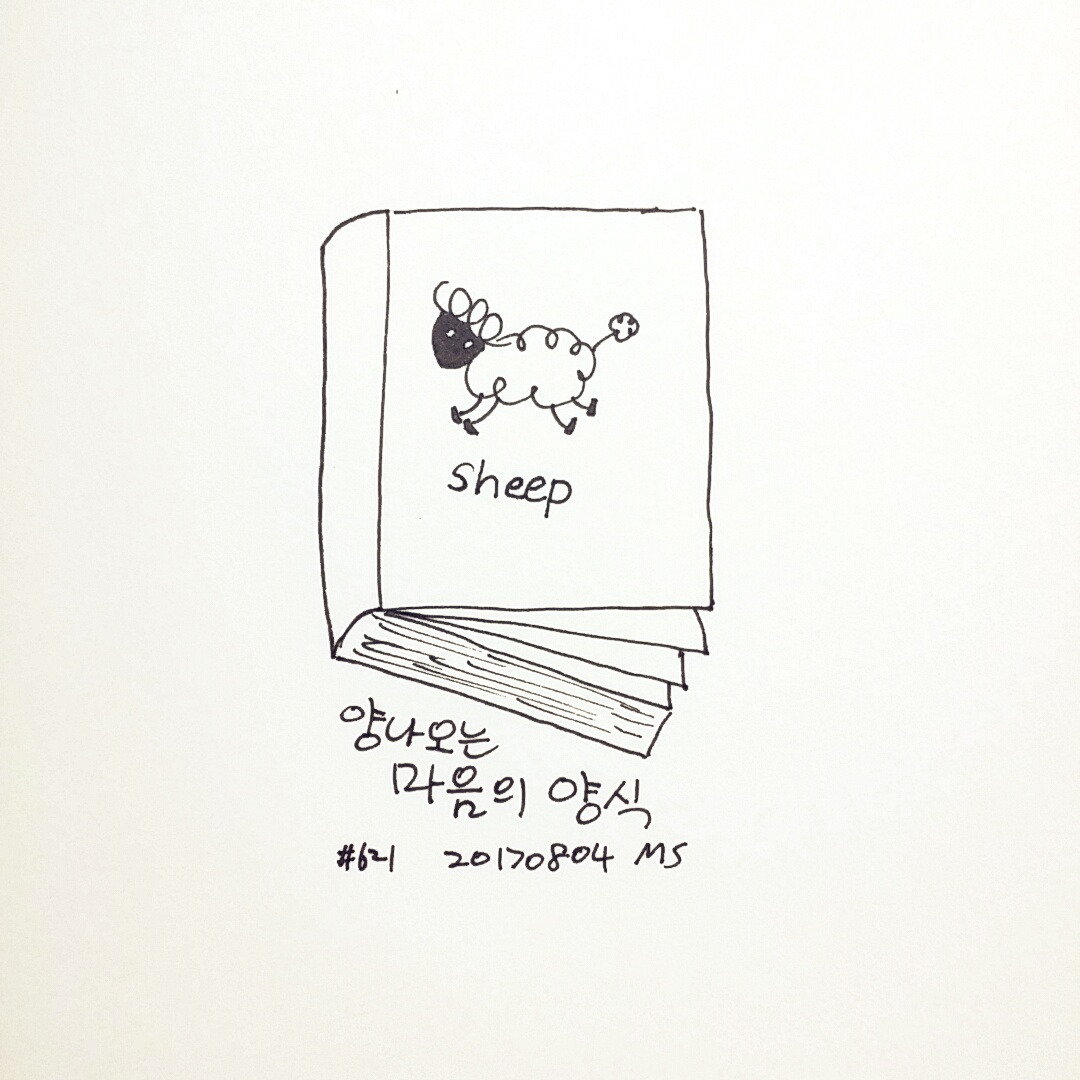 sheep
양나오는
마음의 양식
#621 20170804 MS